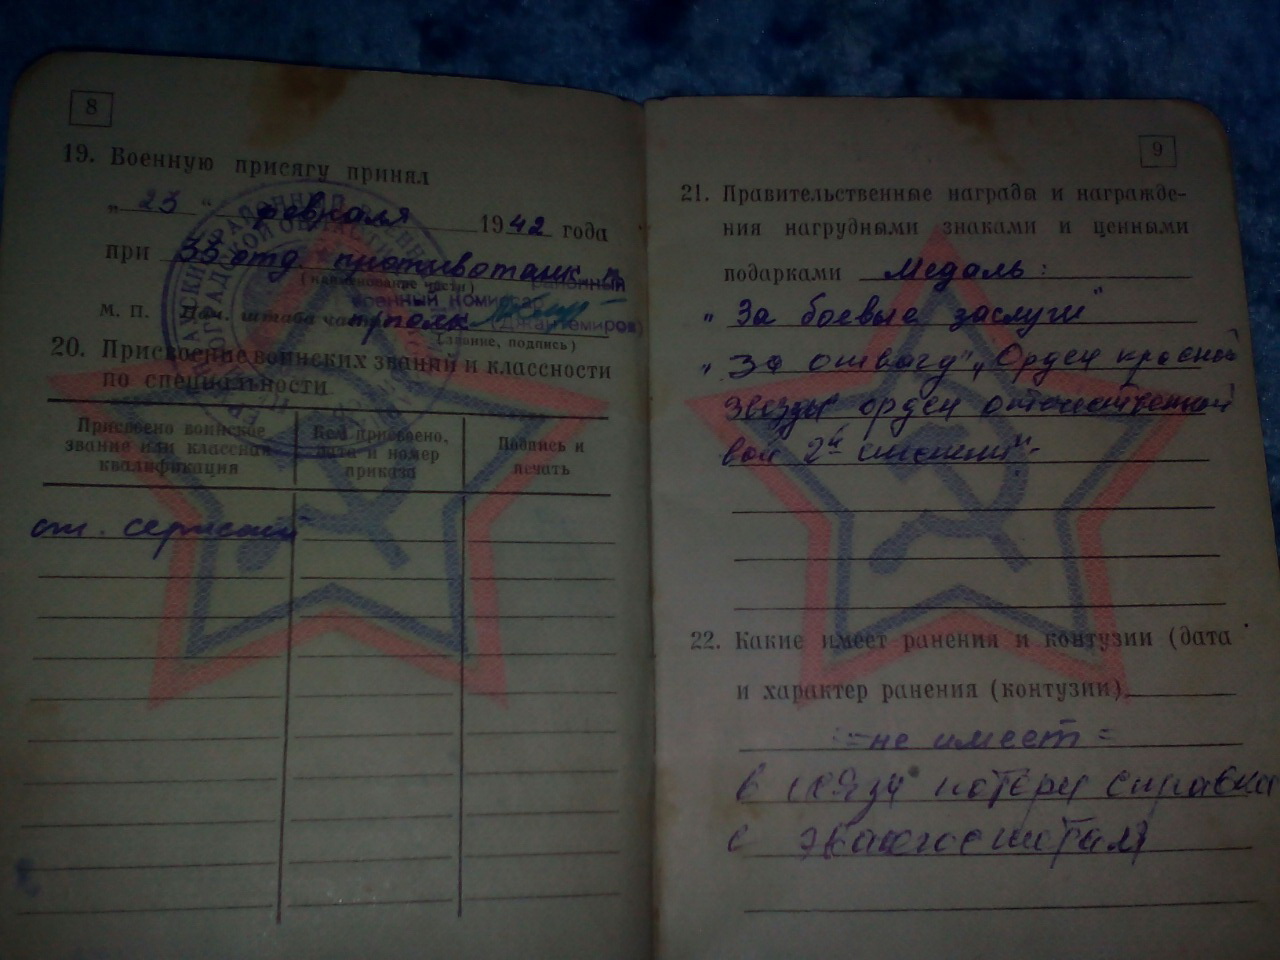 8
19. Военную присягу принял
„ 23 “ февраля 1942 года
при 33 отд противотанк
(наименование части) районный
военный комиссар
М. П. Нач. штаба части полк (Джантемиров)
(звание, подпись)
20. Присвоение воинских званий и классности
по специальности
Присвоено воинское
звание или классная
квалификация
Кем присвоено,
дата и номер
приказа
Подпись и
печать
ст. сержант
9
21. Правительственные награды и награжде-
ния нагрудными знаками и ценными
подарками Медаль:
„За боевые заслуги"
„За отвагу", Орден красной
Звезды орден отечественной
вой 2й степени"-
22. Какие имеет ранения и контузии (дата
и характер ранения (контузии)
=не имеет=
в связи потери справка
с эвакогоспиталя